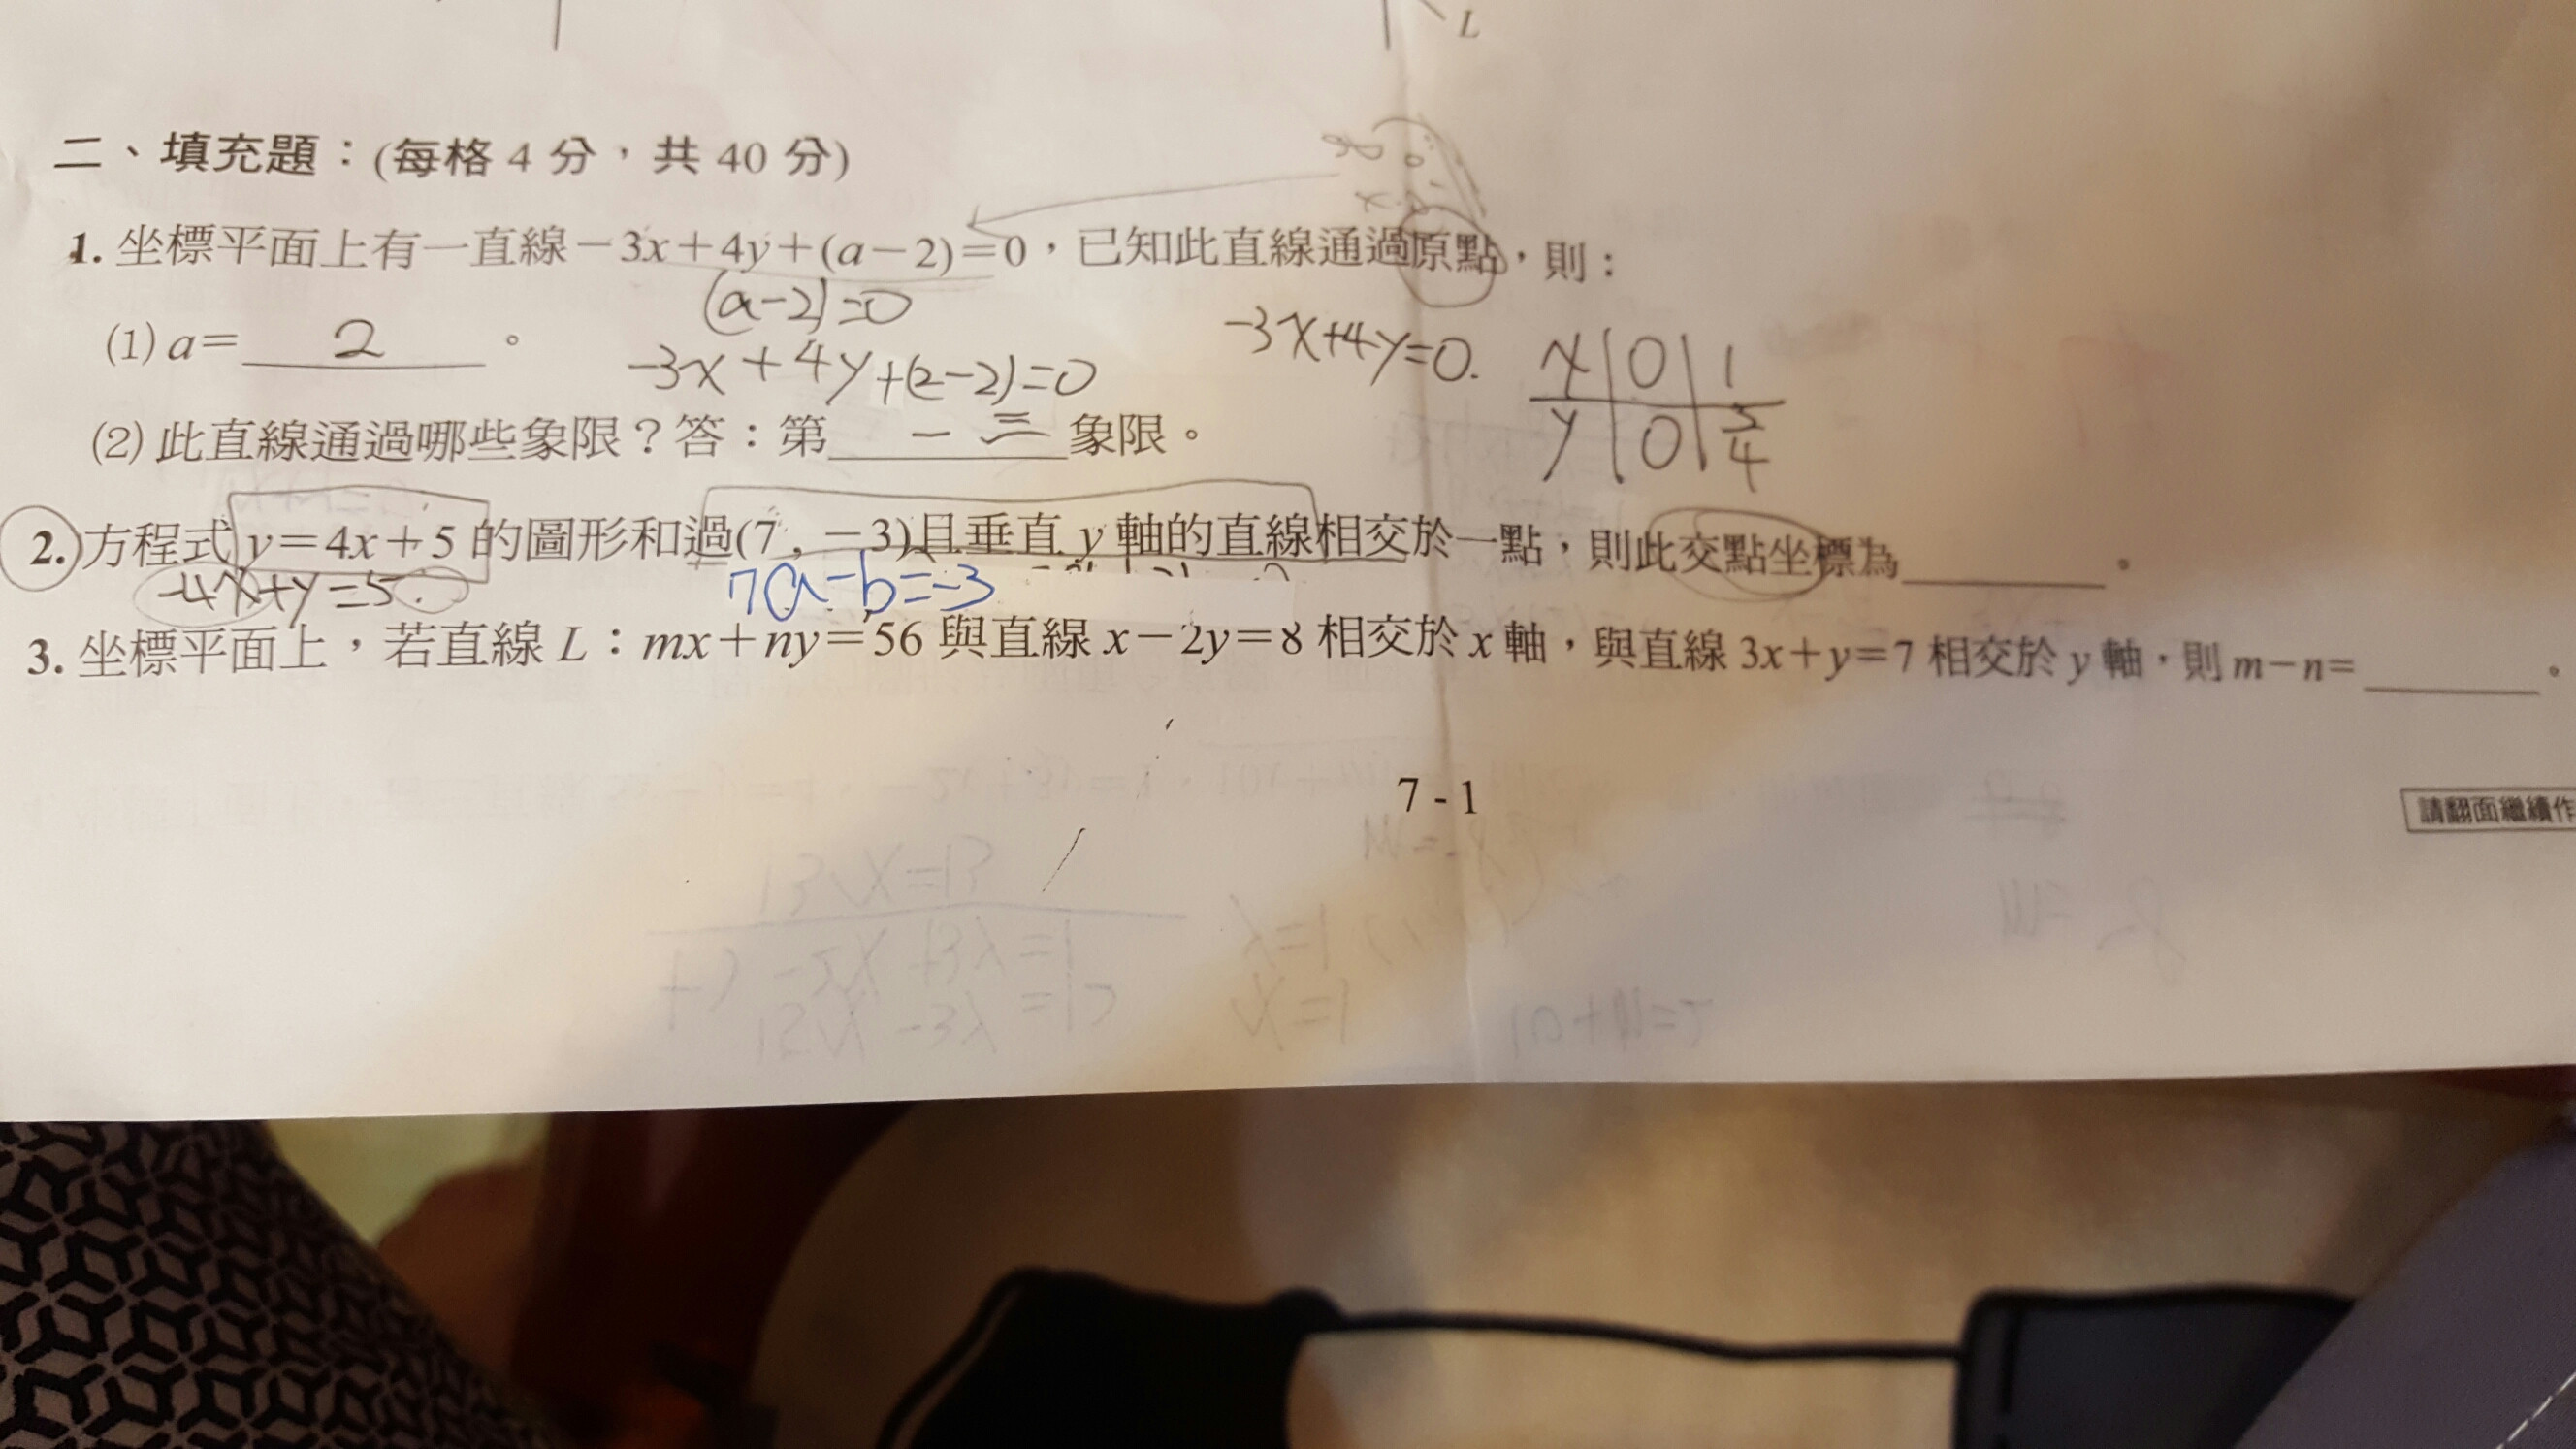 L
二、填充題：(每格 4 分，共 40 分)
1. 坐標平面上有一直線－3x＋4y＋(a－2)＝0，已知此直線通過原點，則：
(a-2)=0
(1) a＝ 2 。
-3x+4y+(2-2)=0
-3x+4y=0.
x 0 1
y 0 3/4
(2) 此直線通過哪些象限？答：第 一 三 象限。
2. 方程式 y＝4x＋5 的圖形和過(7，－3)且垂直 y 軸的直線相交於一點，則此交點坐標為 。
-4x+y=5
7a-b=-3
3. 坐標平面上，若直線 L：mx＋ny＝56 與直線 x－2y＝8 相交於 x 軸，與直線 3x＋y＝7 相交於 y 軸，則 m－n＝ 。
7 - 1
請翻面繼續作